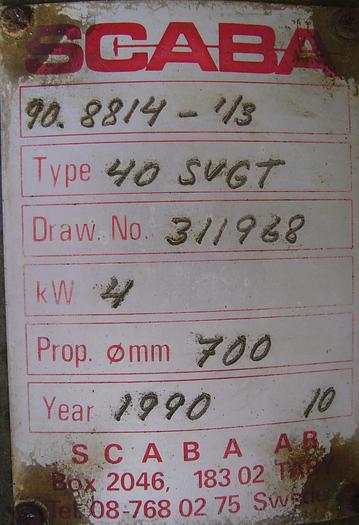 SCABA
90. 8814 - 1/3
Type 40 SVGT
Draw. No. 311968
kW 4
Prop. ømm 700
Year 1990 10
SCABA AB
Box 2046, 183 02 TÄBY
Tel 08-768 02 75 Sweden